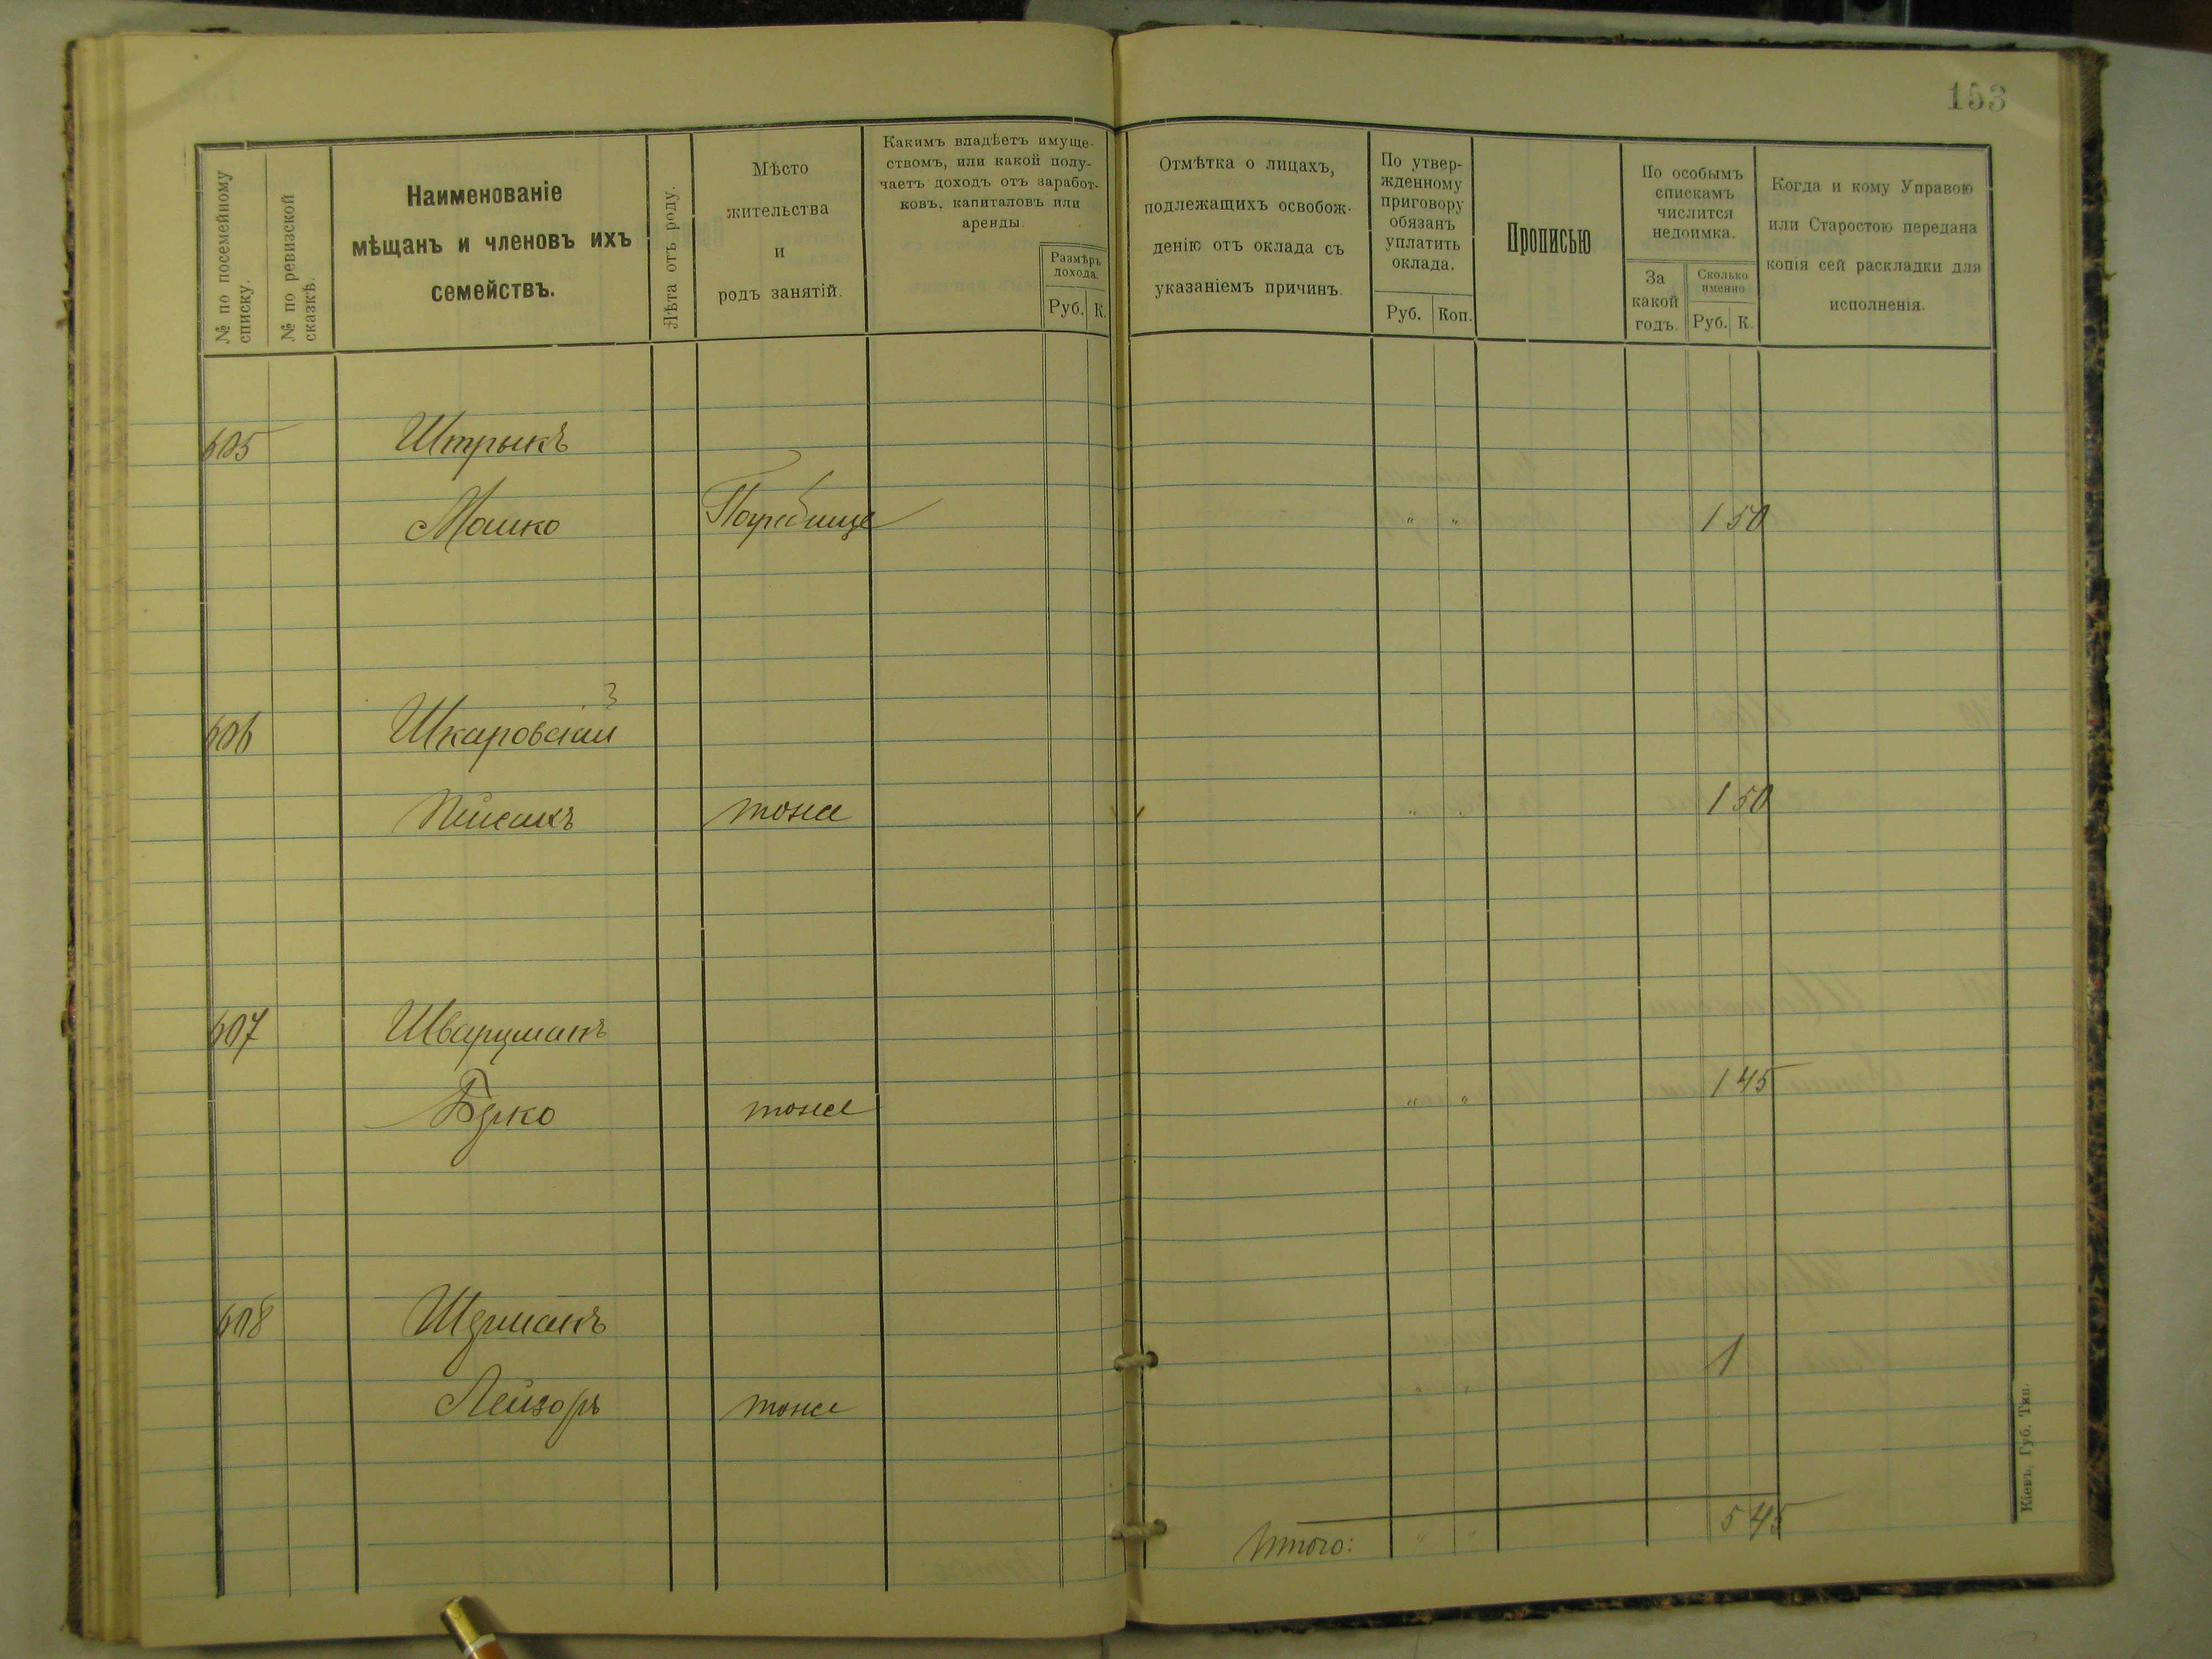 153
№ по посемейному списку.
№ по ревизской сказкѣ.
Наименованіе
мѣщанъ и членовъ ихъ
семействъ.
Лѣта отъ роду.
Мѣсто
жительства
и
родъ занятій.
Какимъ владѣетъ имуще-
ствомъ, или какой полу-
чаетъ доходъ отъ заработ-
ковъ, капиталовъ или
аренды.
Размѣръ
дохода.
Руб. К.
Отмѣтка о лицахъ,
подлежащихъ освобож-
денію отъ оклада съ
указаніемъ причинъ.
По утвер-
жденному
приговору
обязанъ
уплатить
оклада.
Руб. Коп.
Прописью
По особымъ
спискамъ
числится
недоимка.
За
какой
годъ.
Сколько
именно
Руб. К.
Когда и кому Управою
или Старостою передана
копія сей раскладки для
исполненія.
605 Штрыкъ
Мошко Погребище " " 1 50
606 Шкаровскій
тоже " " 1 50
607 Шварцманъ
Берко тоже " " 1 45
608 Шерманъ
Лейзоръ тоже " " 1
Итого: " " 5 45
Кіевъ, Губ. Тип.